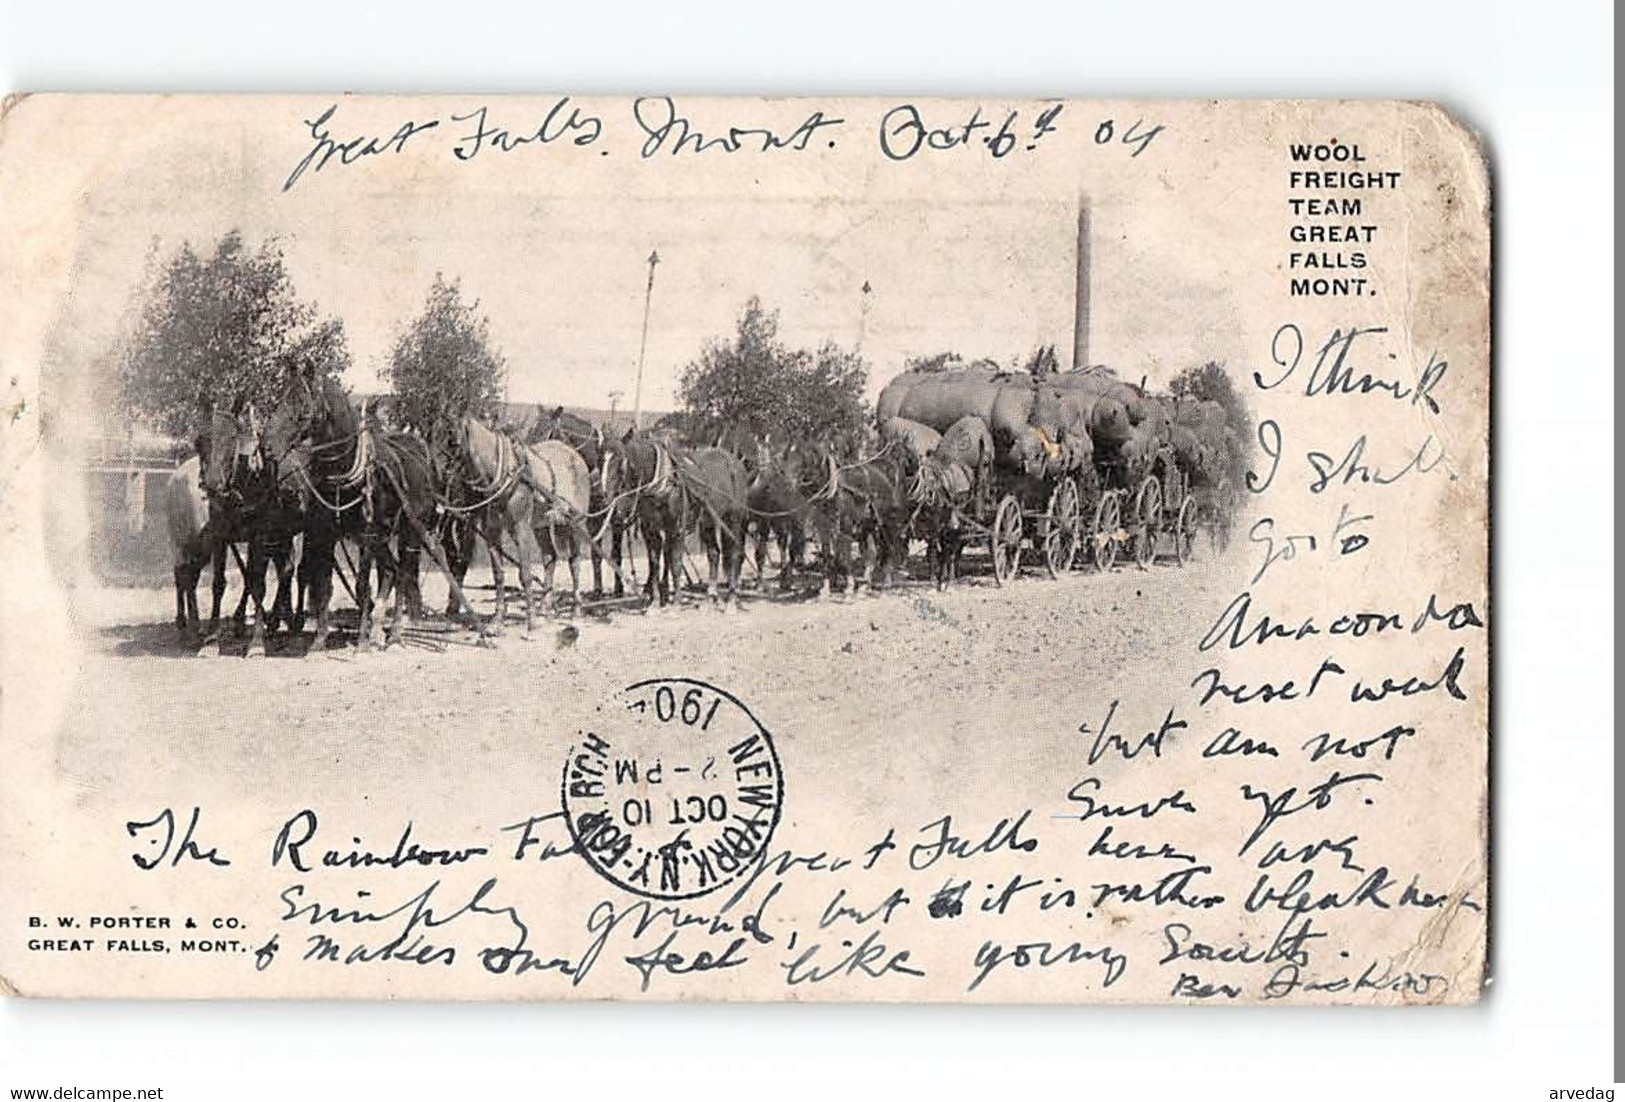 Great Falls. Mont. Oct. 6th 04
WOOL
FREIGHT
TEAM
GREAT
FALLS
MONT.
I think
I shall
go to
Anaconda
next week
but am not
Sure yet.
1904
NEW YORK, N.Y.
OCT 10
2-PM
The Rainbow Falls & great Falls here are
simply grand, but it is rather bleak here
& makes one feel like going South.
Ben
B. W. PORTER & CO.
GREAT FALLS, MONT.
www.delcampe.net
arvedag